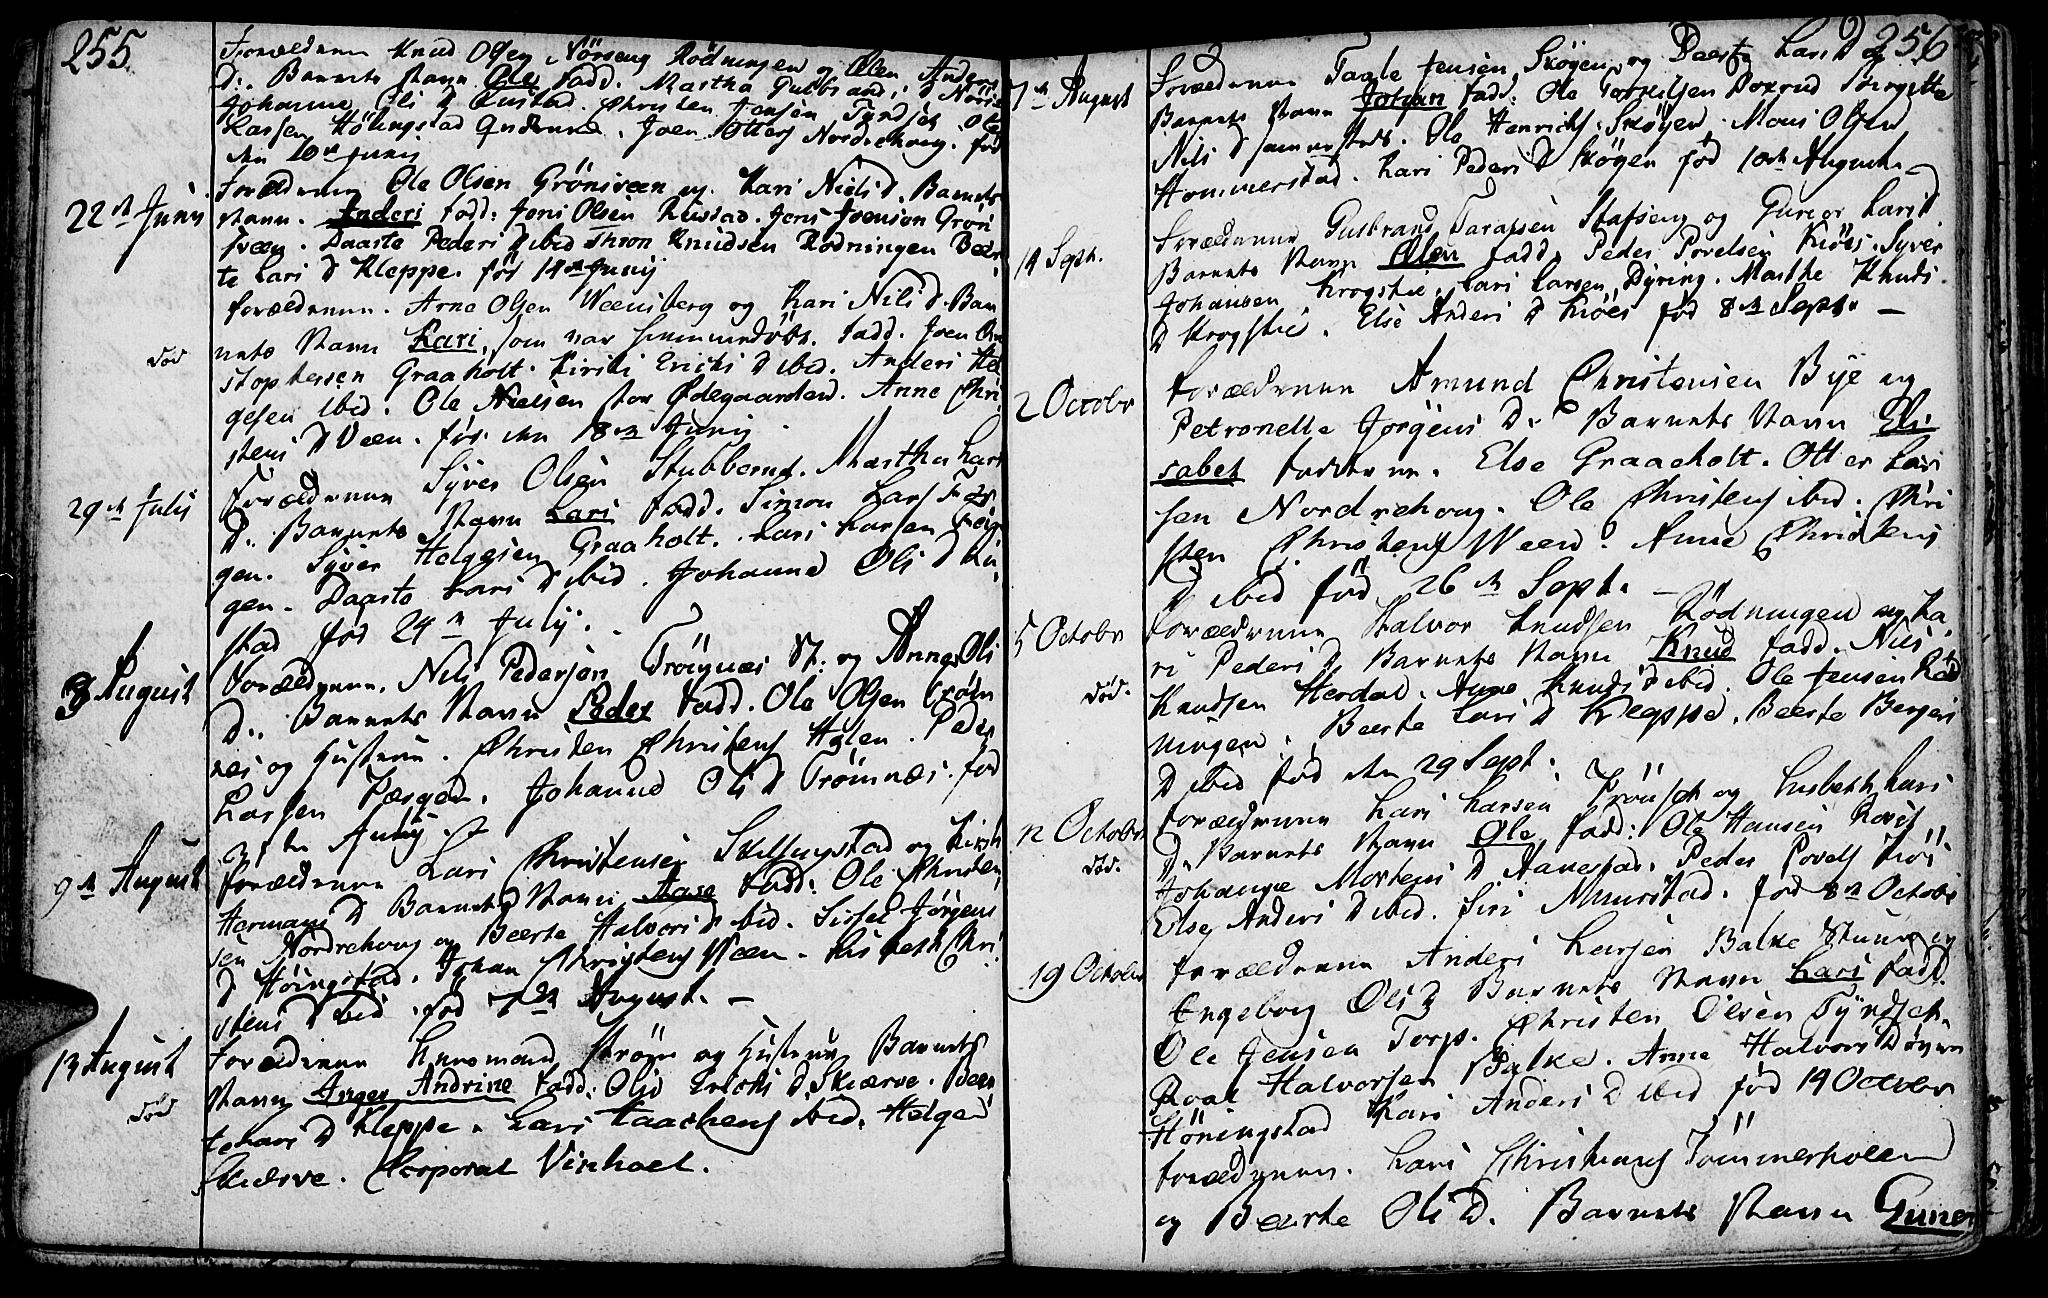 255.
Forældrene Knud Olsen Nörseng Rödningen og Elen Anders
D: Barnets Navn Ole fadd. Martha Gulbrand: D Nörse
Johanne Oli D Rustad. Christen Jensen Tyndset. Ole
Larsen Höingstad Gudmund. Joen Otters Nordrehoug. fød
den 10de Junij
22de Junij
Forældrene Ole Olsen Grönsveen og Kari Niels D. Barnets
Navn. Anders fadd: Joris Olsen Rustad. Joris Joenson Grön
sveen. Daarte Peders D ibid Thron Knudsen Rödningen Beer
te Lars D Kleppe. fød 14de Junij
Forældrene. Arne Olsen Weensberg og Kari Nils D. Bar
død
nets Navn Kari, som var hiemmedøbt. fadd. Joen Chri
stophersen Graaholt. Kirsti Erichs D ibid. Anders Hel
gesen ibid. Ole Nielsen stor Ødegaarden. Anne Chri
stens D Veen. fød. den 18de Junij.
29de Julij
Forældrene Syver Olsen Stubberud. Martha Lars
D. Barnets Navn Lars fadd. Simon Lars
gen. Syver Helgesen Graaholt. Lars Larsen
gen. Daarte Lars D ibid. Johanne Ols D Ru,
stad fød 24de Julij.
3 August
Forældrene. Nils Pedersen Trögnæs St: og Anne Ols
D. Barnets Navn Peder fadd. Ole Olsen Tröm
næs og Hustrue. Christen Christens Holen. Peder
Larsen Johanne Ols D Trömnæs. fød
Julij.
9de August
Forældrene Lars Christensen Skillingstad og Kirsti
Hermans D Barnets Navn Aase fadd: Ole Christen,
sen Nordrehoug og Beerte Halvors D ibid. Sissel Jörgens
D Höingstad. Johan Christens Ween. Lisbeth Chri
stens D ibid. fød 7de August. –
13 August
død
Forældrene Lunsmand Ströye og Hustrue Barnets
Navn Inger Andrine fadd: Olid Erichs D Skierve. Beer
te Lars D Kleppe. Lars Kaarhens ibid. Helge
Skierve. Corporal Vinhael.
256
7de August
Forældrene Taale Jensen Skögen og Beerte Lars D
Barnets Navn Johan fadd: Ole Gornelsen Doxrud
Nils D sammesteds. Ole Henrichs: Skögen. Mons Olsen
Hommerstad. Kari Peders D Skögen fød 10de August.
14 Sept.
Forældrene Gulbrand Taralsen Stafseng og Gunor Lars D
Barnets Navn Elen fadd. Peder Povelsen Kröes. Syver
Johansen Krogstie. Lars Larsen Dyring. Marthe Knuds
D Krogstie. Else Anders D Kröes fød 8de Sept. –
2 Octobr
Forældrene Amund Christensen Bye og
Petronelle Jörgens D: Barnets Navn Eli
sabet fadderne. Else Graaeholt. Otter Lar
sen Nordrehoug. Ole Christens ibid. Chri
sten Christens Ween. Anne Christens
D ibid fød 26de Sept. –
5 Octobr
død.
Forældrene Halvor Knudsen Rödningen og Ka,
ri Peders D. Barnets Navn Knud fadd. Nils
Knudsen Herdal. Anne Knuds D ibid. Ole Jensen Röd
ningen. Beerte Lars D Kleppe. Beerte Bergers
D ibid fød den 29 Sept.
12 Octobr.
død.
Forældrene Lars Larsen Frönsch og Lisbeth Lars
D. Barnets Navn Ole fadd: Ole Hansen
Johanne Mortens D Aanestad. Peder Povels Kröe
Else Anders D ibid. Siri Muurstad. fød 8de Octobr
19 Octobr
Forældrene Anders Larsen Balke Stuue og
Engeborg Ols D Barnets Navn Lars fadd.
Ole Jensen Torp. Christen Olsen Tyndset.
Roal Halvorsen Balke. Anne Halvors D
Höningstad Kari Anders D ibid fød 14 Octobr
Forældrene. Lars Christians Tömmerholen
og Beerte Ols D. Barnets Navn Guner